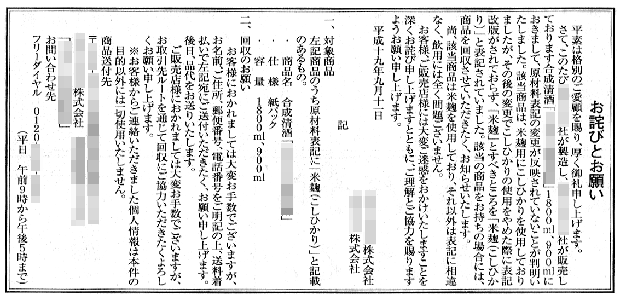 お詫びとお願い
平素は格別のご愛顧を賜り厚く御礼申し上げます。
さて、このたび 社が製造し、 社が販売し
ております合成清酒「 」1800ml、900mlに
おきまして、原材料表記の変更が反映されていないことが判明い
たしました。該当商品は、米麹用にこしひかりを使用しており
ましたが、その後の変更でこしひかりの使用をやめた際に表記
改版がされておらず、「米麹」とすべきところを「米麹（こしひか
り）」と表記されていました。該当の商品をお持ちの場合には、
商品を回収させていただきたく、お知らせいたします。
尚、該当商品は米麹を使用しており、それ以外は表記に相違
なく、飲用には全く問題ございません。
お客様、ご販売店様には大変ご迷惑をおかけいたしますことを
深くお詫び申し上げますとともに、ご理解とご協力を賜ります
ようお願い申し上げます。
平成十九年九月十二日
株式会社
株式会社
記
一、対象商品
左記商品のうち原材料表記に「米麹（こしひかり）」と記載
のあるもの。
商品名 合成清酒「 」
・仕様 紙パック
・容量 1800ml、900ml
二、回収のお願い
お客様におかれましては大変お手数でございますが、
お名前、ご住所、郵便番号、電話番号をご明記の上、送料着
払いで左記宛にご送付いただきたく、お願い申し上げます。
後日、品代をお送りいたします。
ご販売店様におかれましては大変お手数でございますが、
お取引先ルートを通じて回収にご協力いただきたくよろし
くお願い申し上げます。
※お客様からご連絡いただきました個人情報は本件の
目的以外には一切使用いたしません。
商品送付先
〒
株式会社
お問い合わせ先
フリーダイヤル 0120
（平日 午前9時から午後5時まで）